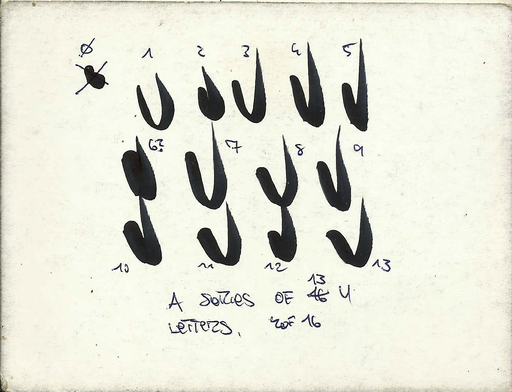 Ø 1 2 3 4 5
6? 7 8 9
10 11 12 13
13
A SERIES OF 16 U
LETTERS, NOT 16